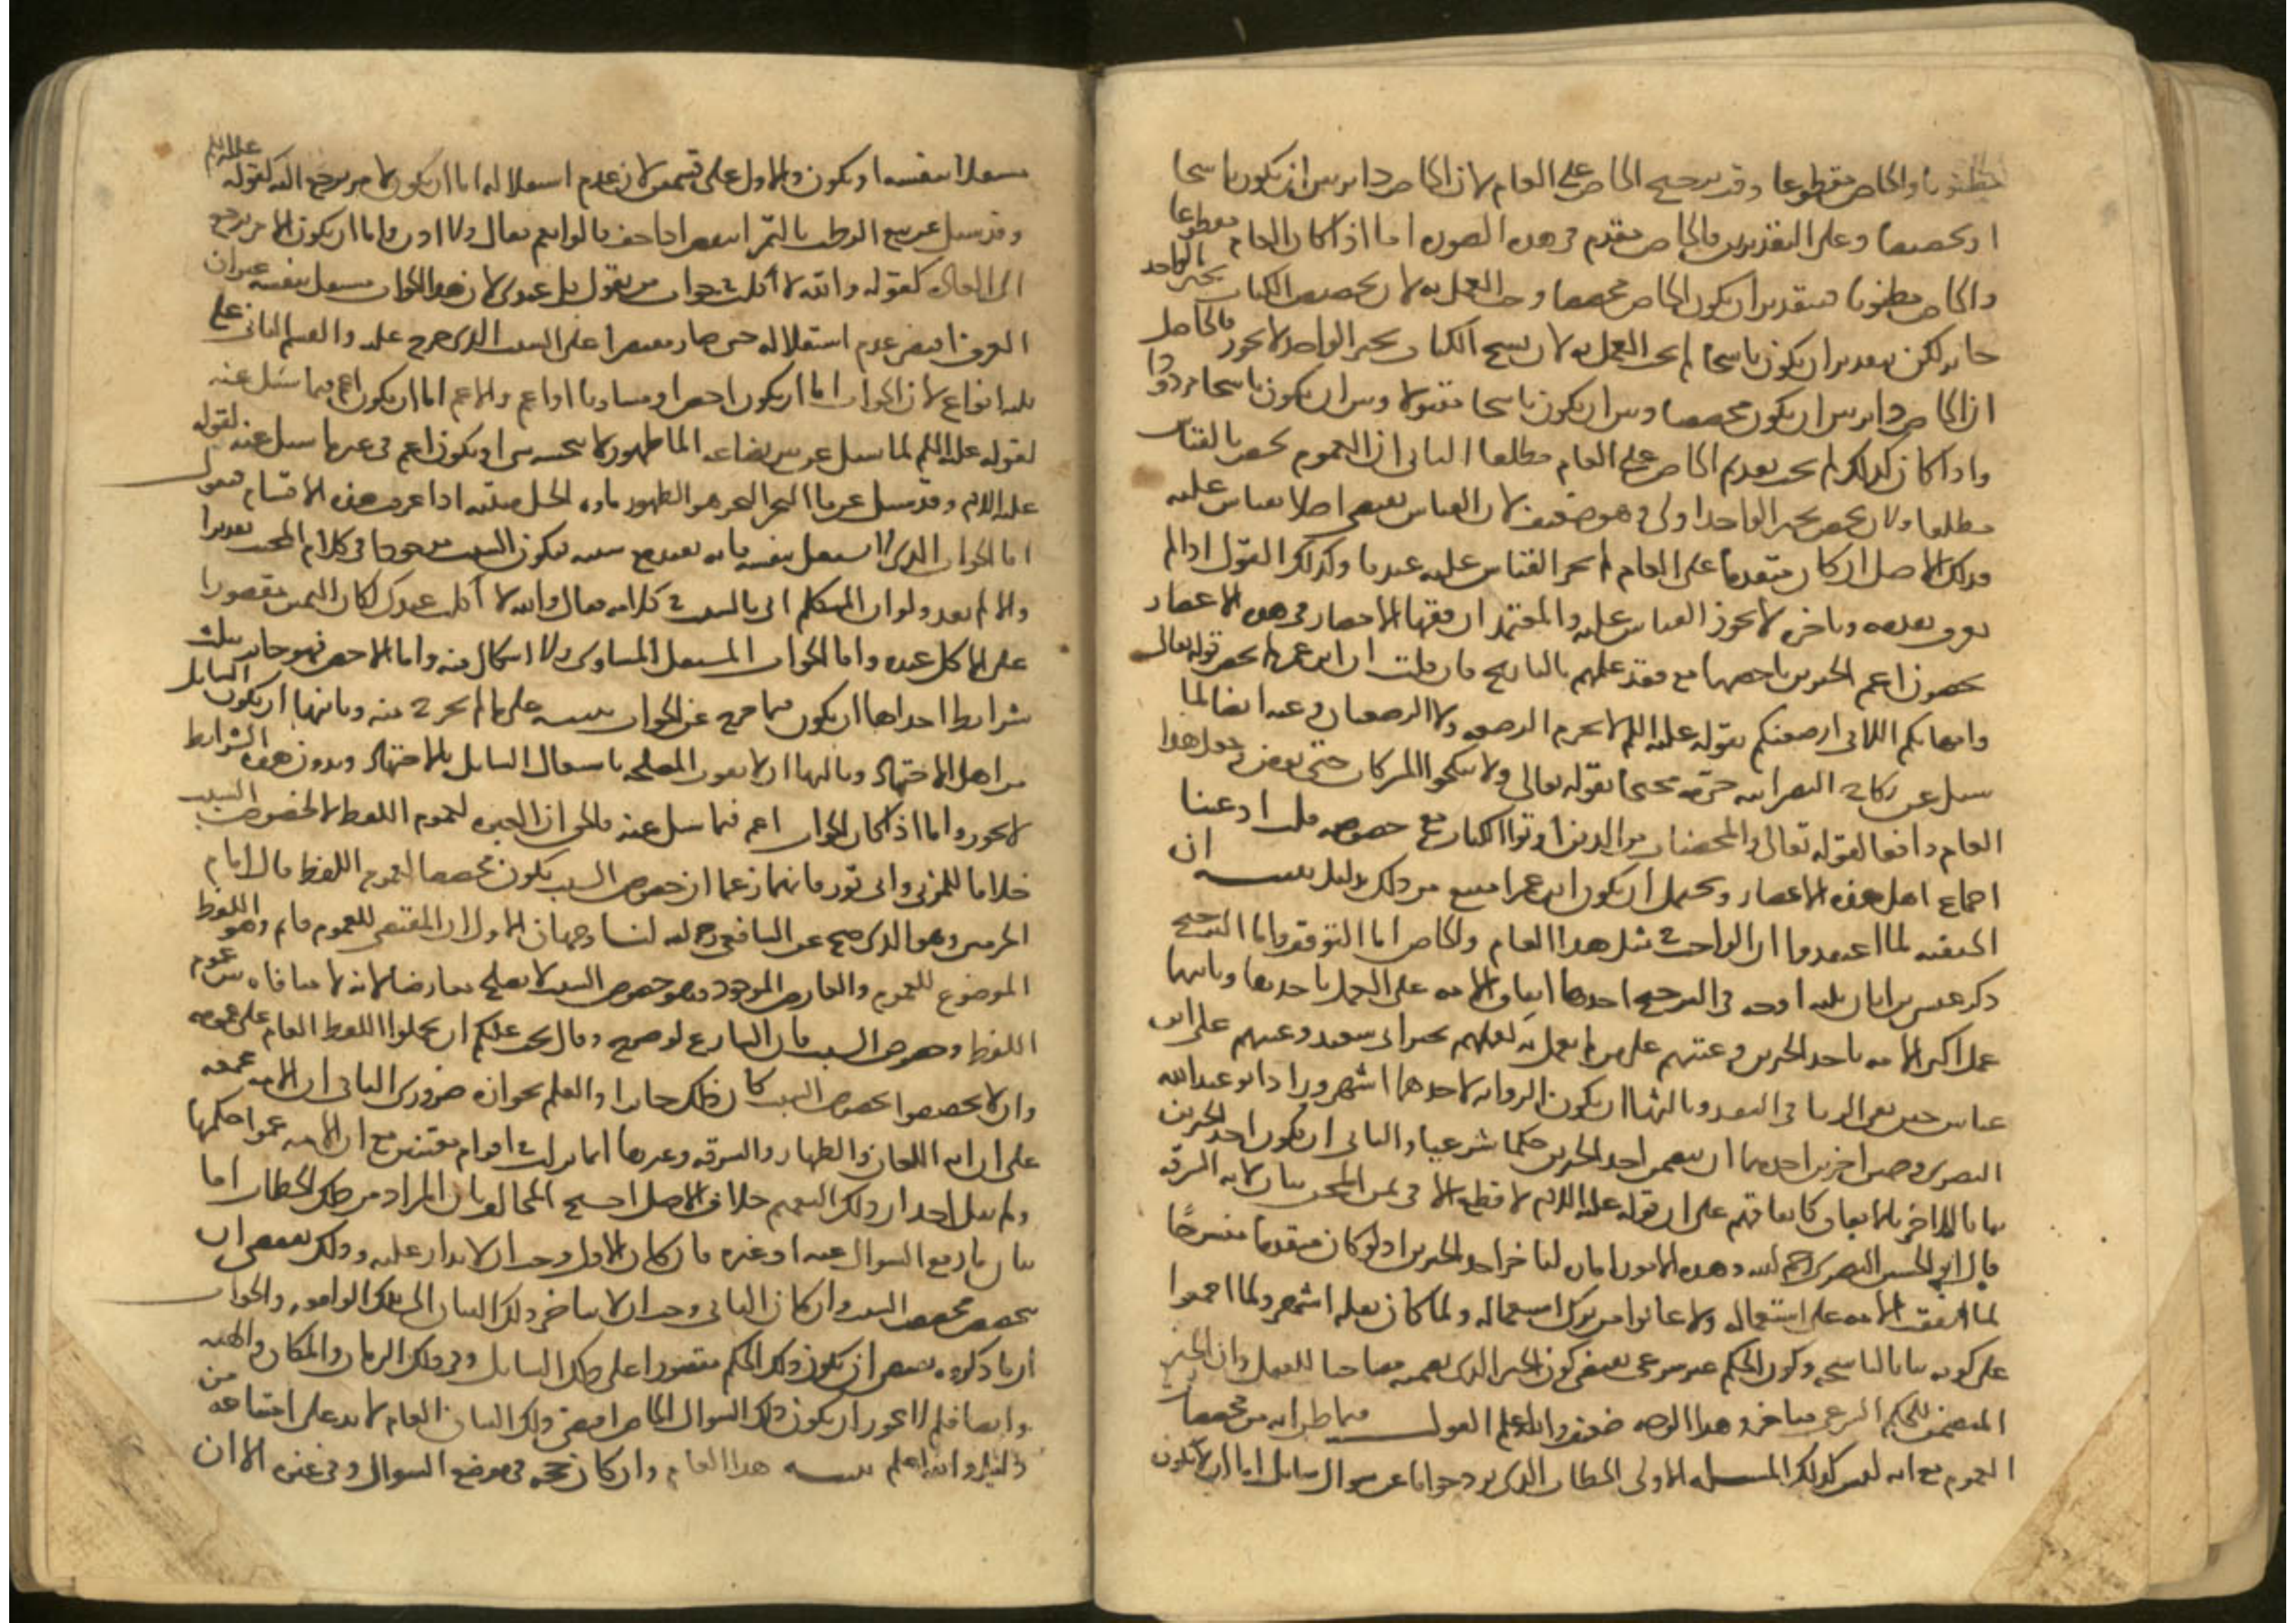 مظنونا والخاص مقطوعا وقد يرجح الخاص على العام لان الخاص دائر بين ان يكون ناسخا
او مخصصا وعلى التقديرين فالخاص مقدم في هذه الصورة اما اذا كان العام مقطوعا
والخاص مظنونا فبتقدير ان يكون الخاص مخصصا وجب العمل به لان تخصيص الكتاب بخبر الواحد
جايز لكن بتقدير ان يكون ناسخا لم يجب العمل به لان نسخ الكتاب بخبر الواحد لا يجوز فالحاصل
ان الخاص دائر بين ان يكون مخصصا وبين ان يكون ناسخا مقبولا وبين ان يكون ناسخا مردودا
واذا كان كذلك لم يجب تقديم الخاص على العام مطلقا الثاني ان العموم يخص بالقياس
مطلقا ولان يخص بخبر الواحد اولى وهو ضعيف لان القياس يقتضي اصلا يقاس عليه
فذلك الاصل ان كان متقدما على العام لم يجز القياس عليه عندنا وكذلك القول اذا لم
يعرف تقدمه وتاخره لا يجوز القياس عليه والمعتمد ان فقهاء الامصار في هذه الاعصار
يخصون اعم الخبرين باخصهما مع فقد علمهم بالتاريخ فان قلت ان ابن عمر لم يخص قوله تعالى
وامهاتكم اللاتي ارضعنكم بقوله عليه السلم لا تحرم الرضعة ولا الرضعتان وعنه ايضا لما
سئل عن نكاح النصرانية حرمه محتجا بقوله تعالى ولا تنكحوا المشركات حتى يؤمن وجعل هذا
العام دافعا لقوله تعالى والمحصنات من الذين اوتوا الكتاب مع خصوصه قلت ادعينا
اجماع اهل هذه الاعصار ويحتمل ان يكون ابن عمر امتنع من ذلك بدليل تنبيه ان
الحنفية لما اعتقدوا ان الواجب في مثل هذا العام والخاص اما التوقف واما الترجيح
ذكر عيسى بن ابان ثلثة اوجه في الترجيح احدها اتفاق الامة على العمل باحدهما وثانيها
عمل اكثر الامة باحد الخبرين وعيبهم على من لم يعمل به كعملهم بخبر ابي سعيد وعيبهم على ابن
عباس حين نفى الربا في النقد وثالثها ان يكون الرواية لاحدهما اشهر وزاد ابو عبد الله
البصري وجهين اخرين احدهما ان يتضمن احد الخبرين حكما شرعيا والثاني ان يكون احد الخبرين
بيانا للاخر بالاتفاق كاتفاقهم على ان قوله عليه السلم لا قطع الا في ثمن المجن بيان لاية السرقة
قال ابو الحسين البصري رحمه الله وهذه الامور امارات لتاخر احد الخبرين اذ لو كان متقدما منسوخا
لما اتفقت الامة على استعماله ولا عابوا من ترك استعماله ولما كان نقله اشهر ولما اجمعوا
على كونه بيانا لناسخه وكون الحكم غير شرعي يقتضي كون الخبر الذي تضمنه مصاحبا للعقل وان الخبر
المتضمن للحكم الشرعي متاخر وهذا الوجه ضعيف والله اعلم القول فيما ظن انه من مخصصات
العموم مع انه ليس كذلك المسلة الاولى الخطاب الذي يرد جوابا عن سوال سايل اما ان لا يكون
مستقلا بنفسه او يكون والاول على قسمين لان عدم استقلاله اما ان يكون لامر يرجع اليه كقوله عليه السلم
وقد سئل عن بيع الرطب بالتمر اينقص اذا جف قالوا نعم فقال فلا اذن واما ان يكون لامر يرجع
الى العادة كقوله والله لا آكل في جواب من يقول كل عندي لان هذا الجواب مستقل بنفسه غير ان
العرف اقتضى عدم استقلاله حتى صار مقتصرا على السبب الذي خرج عليه والقسم الثاني على
ثلثة انواع لان الجواب اما ان يكون اخص او مساويا او اعم والاعم اما ان يكون اعم فيما سئل عنه
كقوله عليه السلم لما سئل عن بير بضاعة الماء طهور لا ينجسه شي او يكون اعم في غير ما سئل عنه كقوله
عليه السلم وقد سئل عن ماء البحر البحر هو الطهور ماؤه الحل ميتته اذا عرفت هذه الاقسام فنقول
اما الجواب الذي لا يستقل بنفسه فانه يفيد مع سببه فيكون السبب موجودا في كلام المجيب تقديرا
والا لم يفد ولو ان المتكلم اتى بالسبب في كلامه فقال والله لا آكل عندك لكان اليمين مقصورا
على الاكل عنده واما الجواب المستقل المساوي ولا اشكال فيه واما الاخص فهو جايز بثلث
شرايط احداها ان يكون فيما خرج عن الجواب تنبيه على ما لم يخرج منه وثانيها ان يكون السايل
من اهل الاجتهاد وثالثها ان لا تفوت المصلحة باشتغال السايل بالاجتهاد وبدون هذه الشرايط
لا يجوز واما اذا كان الجواب اعم فيما سئل عنه فالحق ان العبرة لعموم اللفظ لا لخصوص السبب
خلافا للمزني وابي ثور فانهما زعما ان خصوص السبب يكون مخصصا لعموم اللفظ قال امام
الحرمين وهو الذي صح عن الشافعي رحمه الله لنا وجهان الاول ان المقتضي للعموم قايم وهو اللفظ
الموضوع للعموم والعارض الموجود وهو خصوص السبب لا يصلح معارضا لانه لا منافاة بين عموم
اللفظ وخصوص السبب فان الشارع لو صرح وقال يجب عليكم ان تحملوا اللفظ العام على عمومه
وان لا تخصصوا بخصوص السبب كان ذلك جايزا والعلم بجوازه ضروري الثاني ان الامة مجمعة
على ان اية اللعان والظهار والسرقة وغيرها انما نزلت في اقوام معينين مع ان الامة عمموا حكمها
ولم يقل احد ان ذلك التعميم خلاف الاصل احتج المخالف بان المراد من ذلك الخطاب اما
بيان ما وقع السوال عنه او غيره فان كان الاول وجب ان لا يزاد عليه وذلك يقتضي ان
يتخصص بتخصص السبب وان كان الثاني وجب ان لا يتاخر ذلك البيان الى تلك الواقعة والجواب
ان ما ذكروه يقتضي ان يكون ذلك الحكم مقصورا على ذلك السايل وفي ذلك الزمان والمكان والهيئة
وايضا فلم لا يجوز ان يكون ذلك السوال الخاص اقتضى ذلك البيان العام لا بد على امتناعه من
دليل والله اعلم تنبيه هذا العام وان كان حجة في موضع السوال وفي غيره الا ان